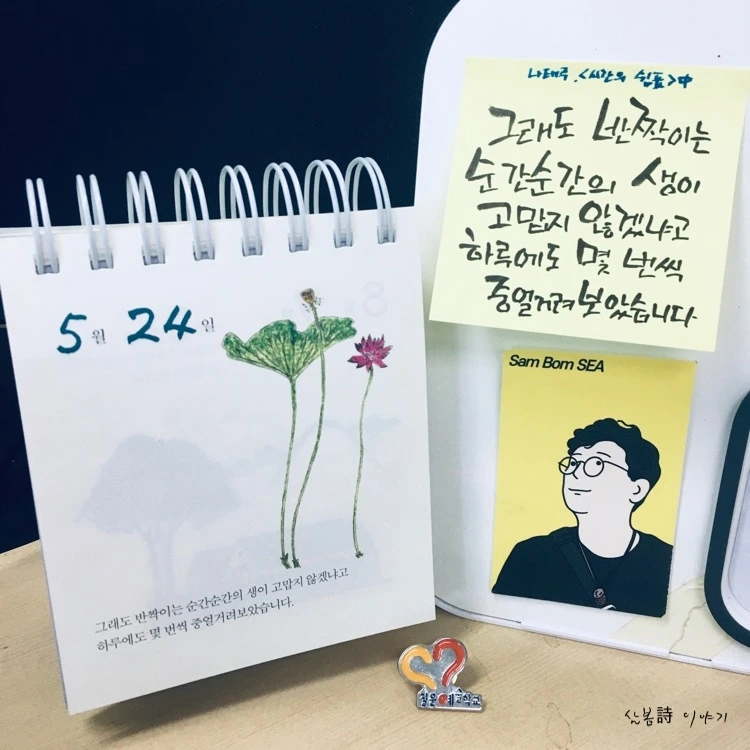 5월 24일
그래도 반짝이는 순간순간의 생이 고맙지 않겠냐고
하루에도 몇 번씩 중얼거려보았습니다.
나태주, <시간의 쉼표>中
그래도 반짝이는
순간순간의 생이
고맙지 않겠냐고
하루에도 몇 번씩
중얼거려보았습니다
Sam Bom SEA
질문예술학교
산봄詩 이야기